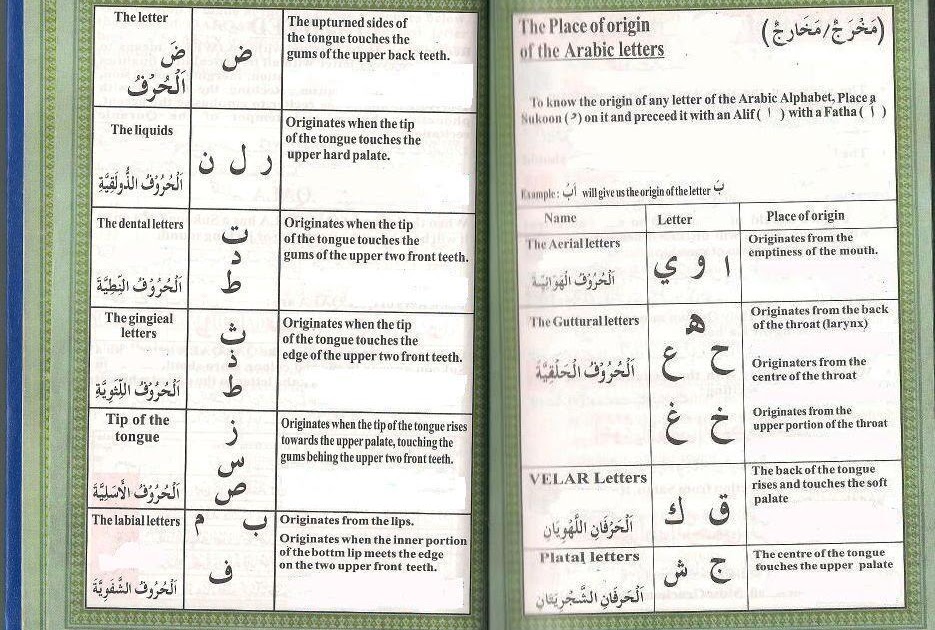 The Place of origin
of the Arabic letters
(مَخْرَجٌ/مَخَارِجٌ)
To know the origin of any letter of the Arabic Alphabet, Place a
Sukoon ( ْ ) on it and preceed it with an Alif ( ا ) with a Fatha ( اَ )
Example : اَبْ will give us the origin of the letter بَ
Name Letter Place of origin
The Aerial letters
اَلْحُرُوْفُ الْهَوَائِيَّةُ
ا و ي
Originates from the
emptiness of the mouth.
The Guttural letters
اَلْحُرُوْفُ الْحَلْقِيَّةُ
ه
ح ع
خ غ
Originates from the back
of the throat (larynx)
Originaters from the
centre of the throat
Originates from the
upper portion of the throat
VELAR Letters
اَلْحَرْفَانِ اللَّهْوِيَانِ
ق ك
The back of the tongue
rises and touches the soft
palate
Platal letters
اَلْحَرْفَانِ الشَّجْرِيَتَانِ
ج ش
The centre of the tongue
touches the upper palate
The letter
ضَ
اَلْحُرُوْفُ
ض
The upturned sides of
the tongue touches the
gums of the upper back teeth.
The liquids
اَلْحُرُوْفُ الذُّولَقِيَّةِ
ر ل ن
Originates when the tip
of the tongue touches the
upper hard palate.
The dental letters
اَلْحُرُوْفُ النِّطِيَّةِ
ت
د
ط
Originates when the tip
of the tongue touches the
gums of the upper two front teeth.
The gingieal
letters
اَلْحُرُوْفُ اللِّثَوِيَّةِ
ث
ذ
ط
Originates when the tip
of the tongue touches the
edge of the upper two front teeth.
Tip of the
tongue
اَلْحُرُوْفُ الْاَسَلِيَّةَ
ز
س
ص
Originates when the tip of the tongue rises
towards the upper palate, touching the
gums behing the upper two front teeth.
The labial letters
اَلْحُرُوْفُ الشَّفَوِيَّةَ
ب م
ف
Originates from the lips.
Originates when the inner portion
of the bottm lip meets the edge
on the two upper front teeth.